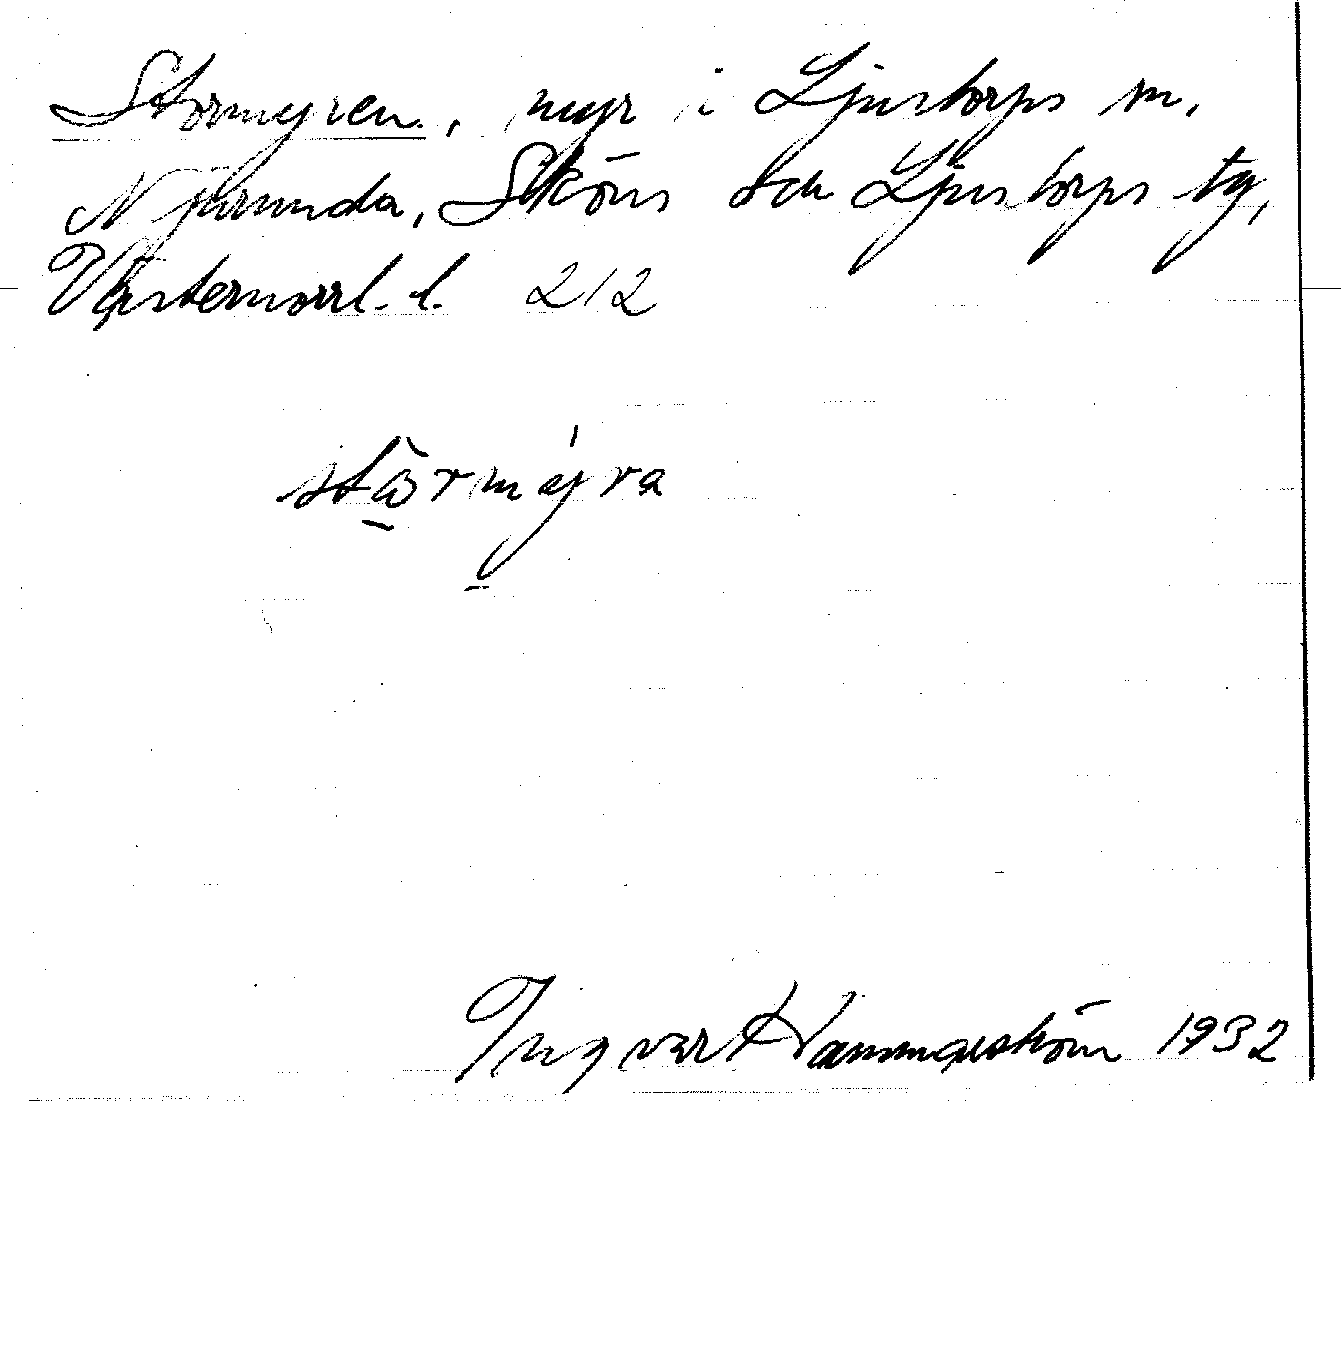 Stormyren, myr i Ljustorps sn,
Njurunda, Sköns och Ljustorps tg,
Västernorrl. l. 212
Ingvar Hammarström 1932